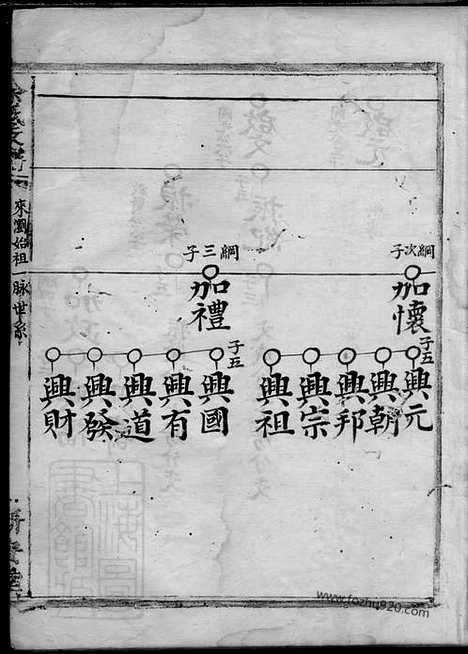 綱次子
加懷
子五
興元
興朝
興邦
興宗
興祖
綱三子
加禮
子五
興國
興有
興道
興發
興財
來酒始祖一脉世系
www.fozhu920.com